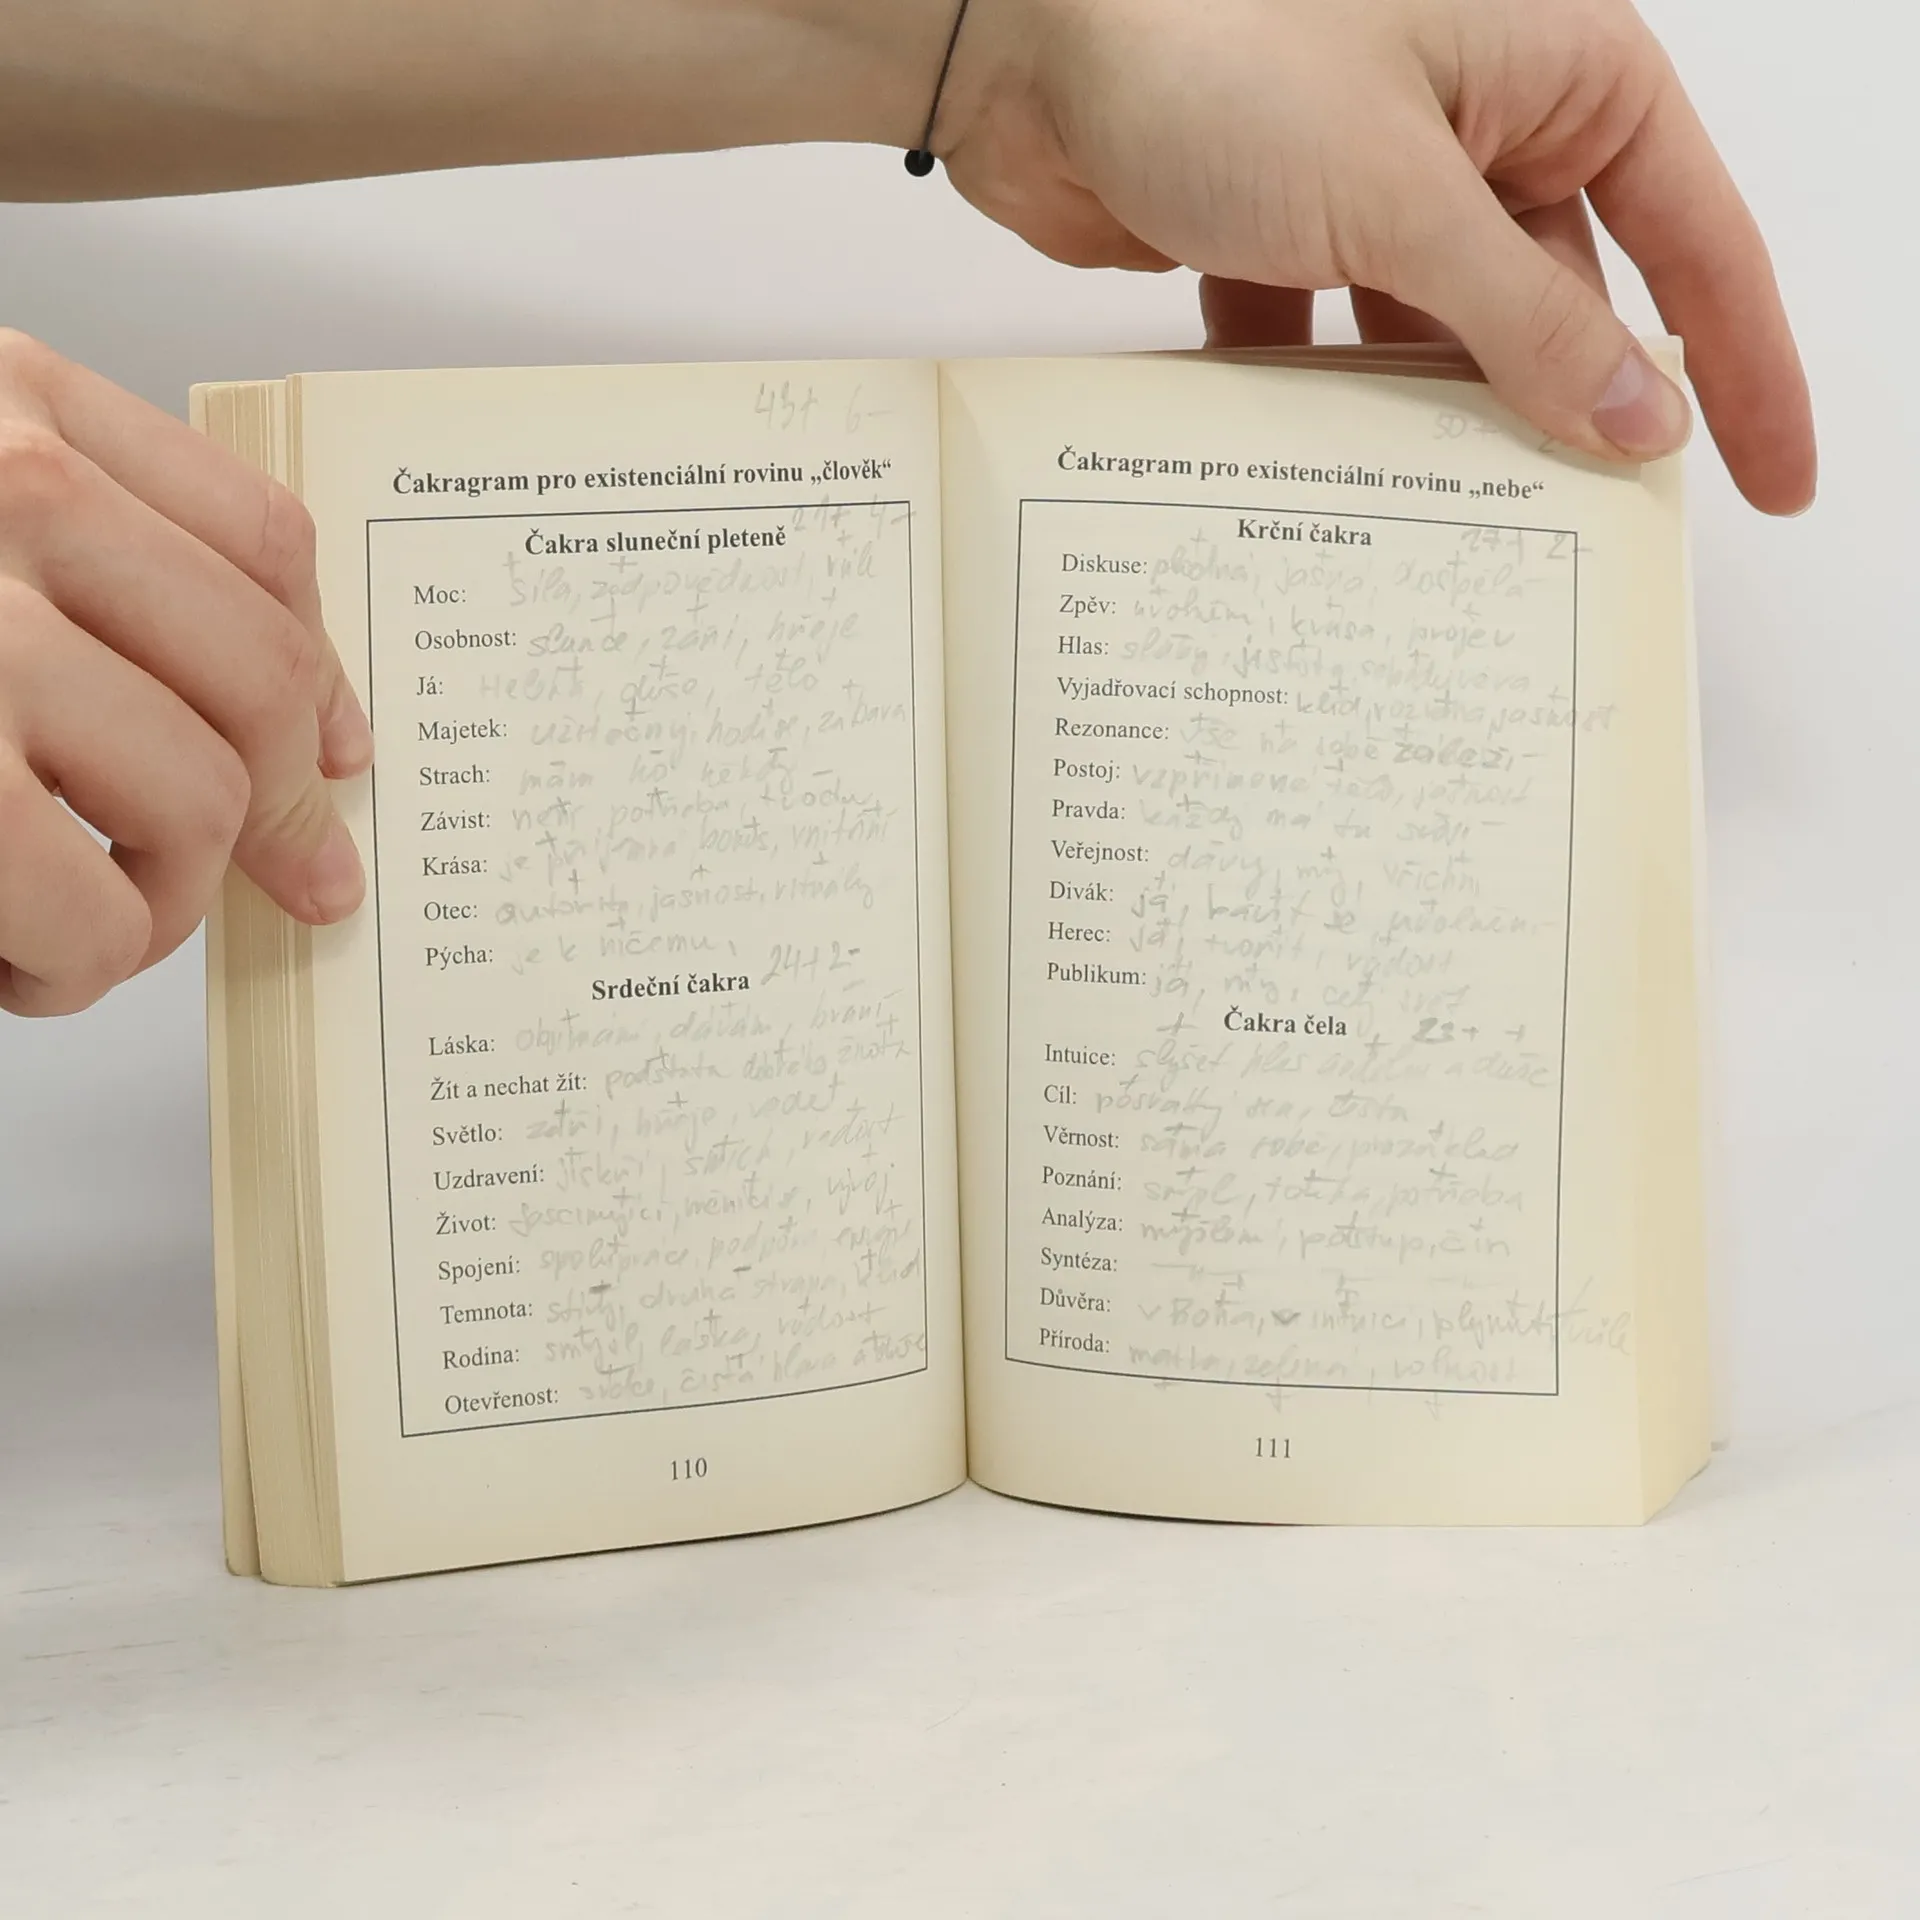 43+ 6-
Čakragram pro existenciální rovinu „člověk“
21+ 4-
Čakra sluneční pleteně
Moc: síla, zodpovědnost, vůle
Osobnost: slunce, září, hřeje
Já: duše, tělo
Majetek: užitečný, hodí se, zábava
Strach: mám ho někdy
Závist: není potřeba
Krása: je příjemná, vnitřní
Otec: autorita, jasnost, rituály
Pýcha: je k ničemu,
Srdeční čakra 24+ 2-
Láska: objímání, dávání, brání
Žít a nechat žít: podstata dobrého života
Světlo: září, hřeje, vede
Uzdravení: jiskří, smích, radost
Život: fascinující, měnící se, vývoj
Spojení: spolupráce, podpora, energie
Temnota: stíny, druhá strana, klid
Rodina: smysl, láska, radost
Otevřenost: srdce, čistá hlava a duše
110
50+ 2
Čakragram pro existenciální rovinu „nebe“
Krční čakra 27+ 2-
Diskuse: plodná, jasná, dospělá
Zpěv: uvolnění, krása, projev
Hlas: jistota,
Vyjadřovací schopnost: klid, rozvaha, jasnost
Rezonance: vše na sobě záleží
Postoj: vzpřímené tělo, jistnost
Pravda: každý má tu svoji
Veřejnost: davy, my, všichni
Divák: já, bavit se, uvolnění
Herec: já, tvořit, radost
Publikum: já, my, celý svět
Čakra čela 23+
Intuice: slyšet hlas andělů a duše
Cíl: cesta
Věrnost: sama sobě,
Poznání: smysl, touha, potřeba
Analýza: myšlení, postup, čin
Syntéza:
Důvěra: v Boha, v intuici, plynutí
Příroda: matka, zelená, volnost
111